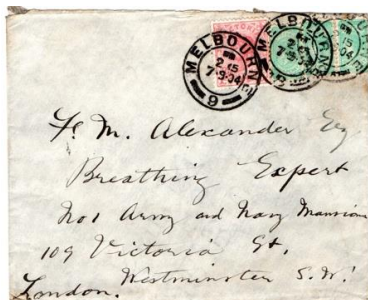 MELBOURNE
2 45
7.9.04
9
MELBOURNE
MELBOURNE
F. M. Alexander Esq
Breathing Expert
No 1 Army and Navy Mansions
109 Victoria St.
Westminster S.W.
London.